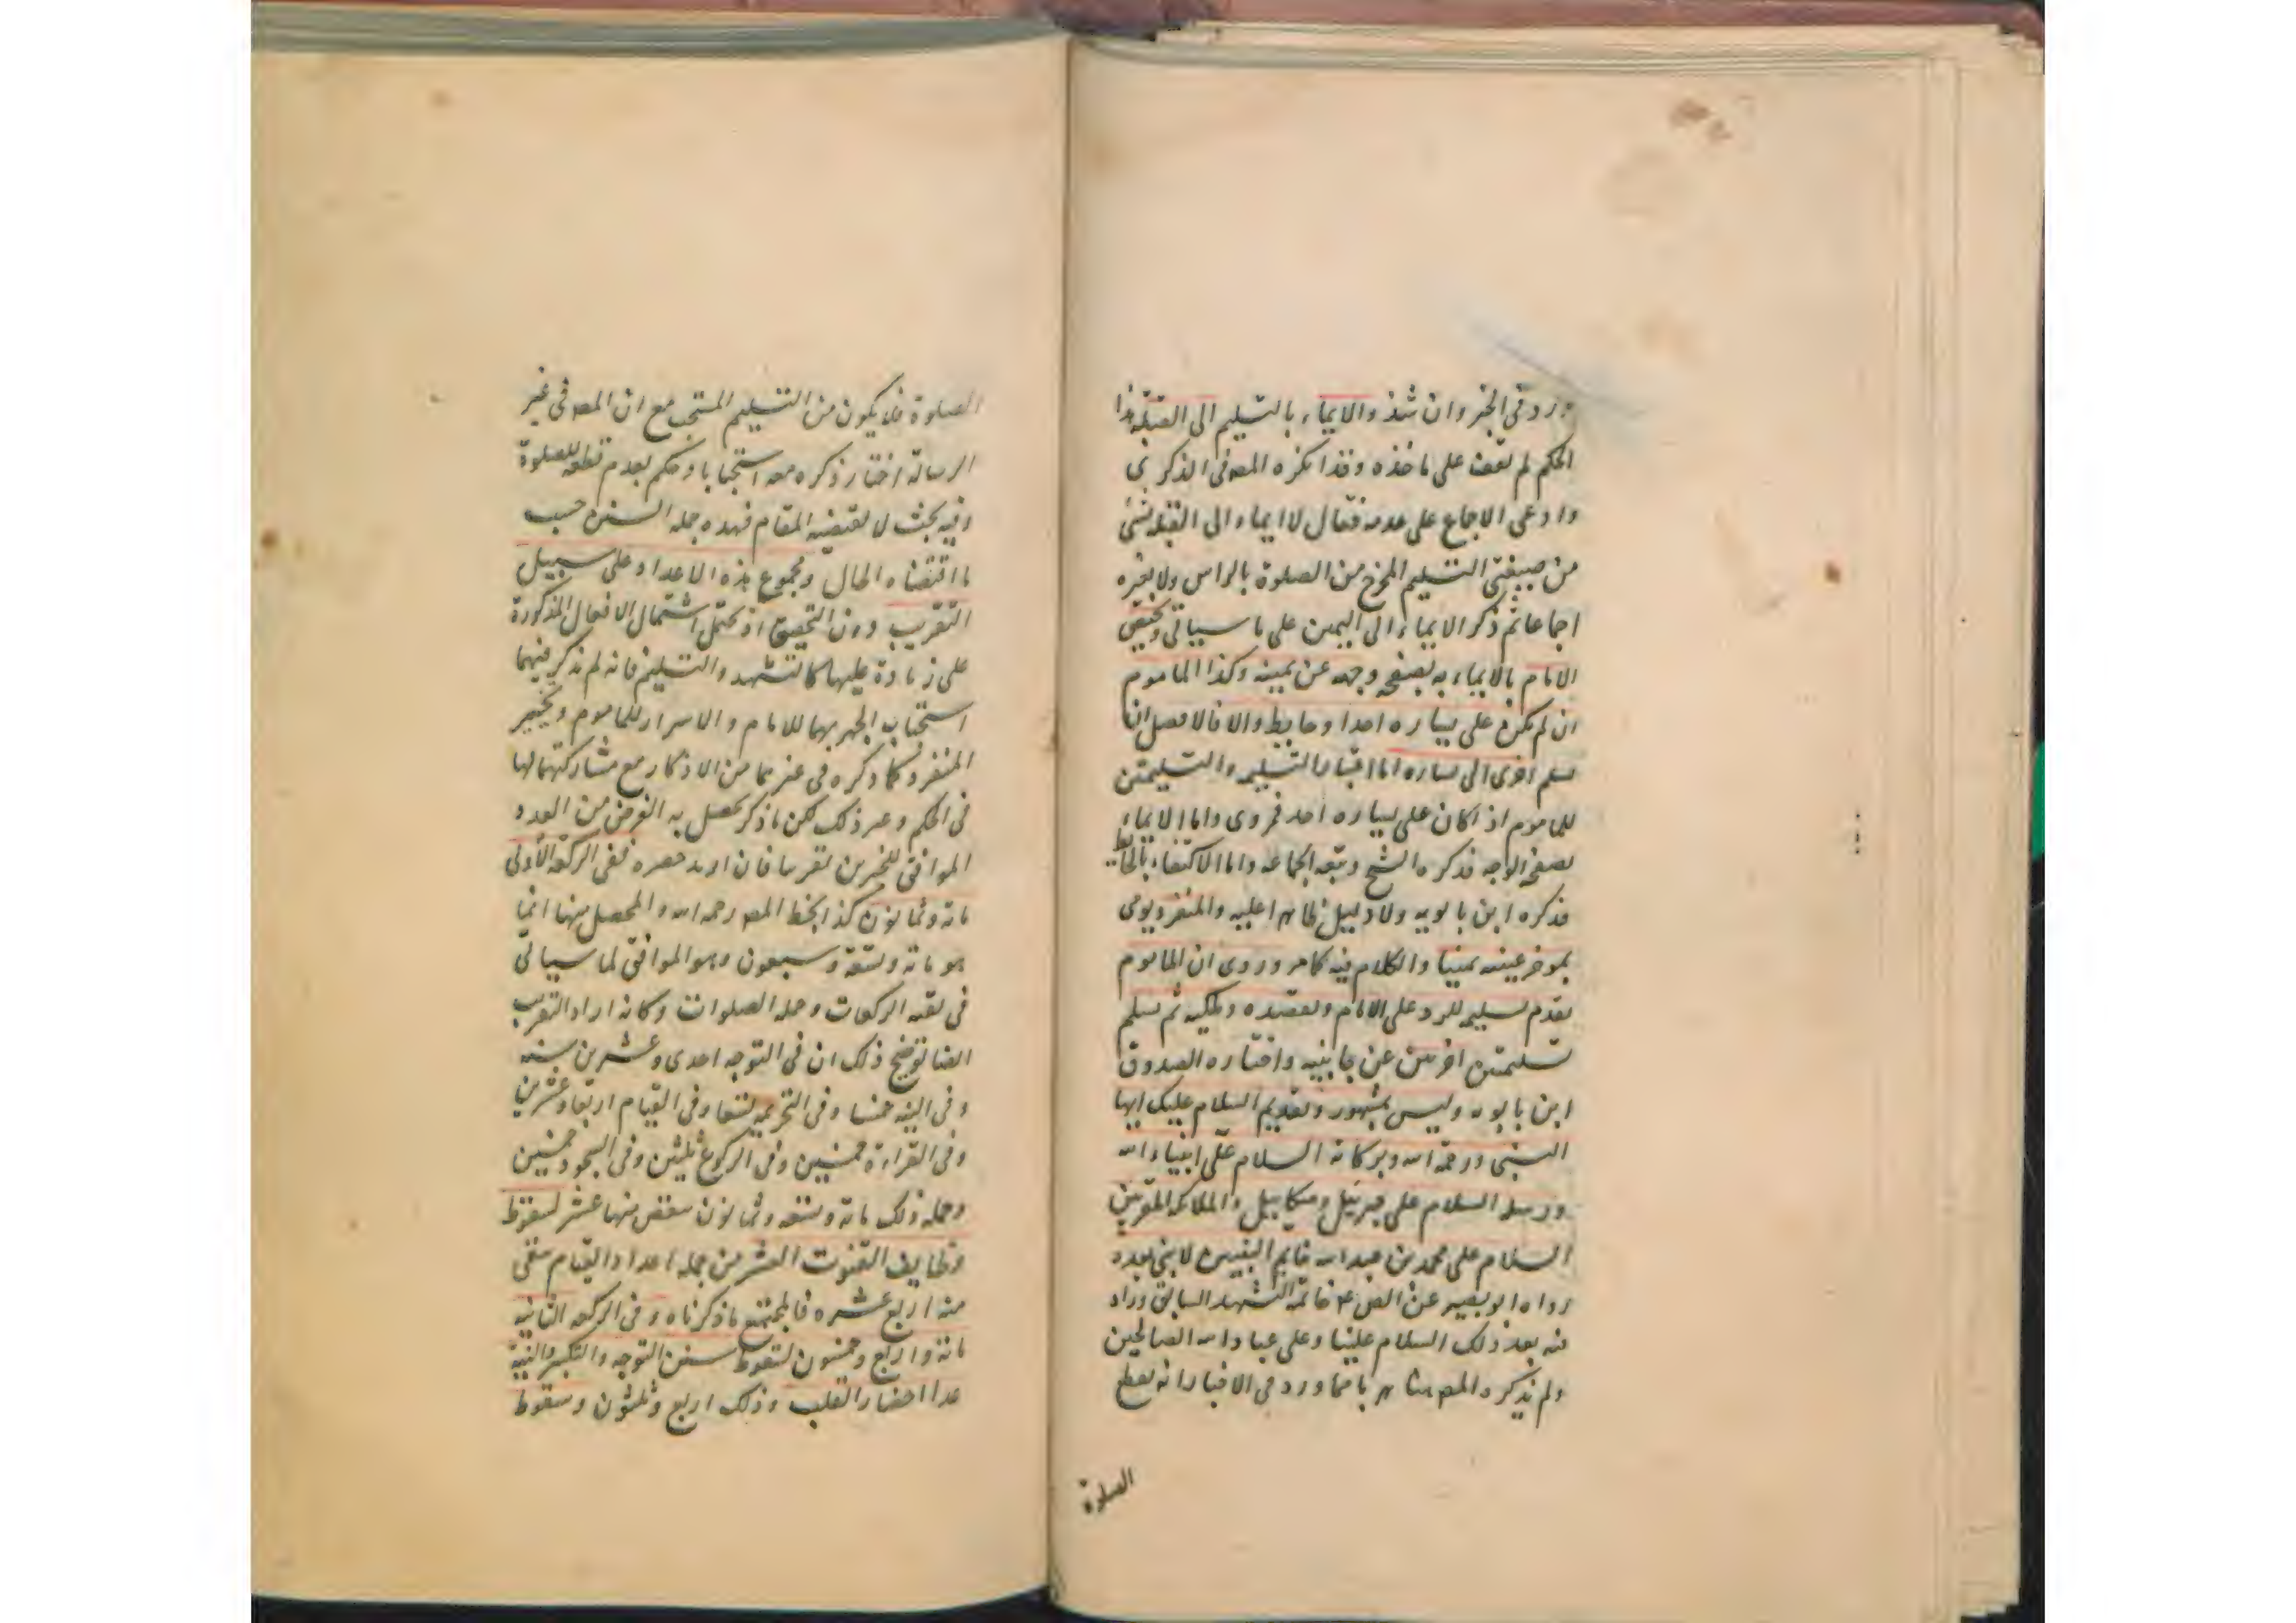 ورد فی الخبر وان شذ والایماء بالتسلیم الی القبلة هذا
الحکم لم نقف علی ماخذه وقد انکره المصه فی الذکری
وادعی الاجماع علی عدمه فقال لا ایماء الی القبلة بشئ
من صیغتی التسلیم المخرج من الصلوة بالراس ولا بغیره
اجماعا ثم ذکر الایماء الی الیمین علی ما سیاتی ویختص
الامام بالایماء به بصفحة وجهه عن یمینه وکذا الماموم
ان لم یکن علی یساره احد او حایط والا فالافضل ان
یسلم اخری الی یساره اما اختیار التسلیم والتسلیمتین
للماموم اذا کان علی یساره احد فمروی واما الایماء
بصفحة الوجه فذکره الشیخ وتبعه الجماعة واما الاکتفاء بالحایط
فذکره ابن بابویه ولا دلیل ظاهرا علیه والمنفرد یومی
بموخر عینه یمینا والکلام فیه کما مر وروی ان الماموم
یقدم تسلیمة للرد علی الامام ویقصده وملکیه ثم یسلم
تسلیمتین اخریین عن جانبیه واختاره الصدوق
ابن بابویه ولیس بمشهور وتقدیم السلام علیک ایها
النبی ورحمة الله وبرکاته السلام علی انبیاء الله
ورسله السلام علی جبرئیل ومیکائیل والملائکة المقربین
السلام علی محمد بن عبد الله خاتم النبیین لا نبی بعده
رواه ابو بصیر عن الص ع خاتمة التشهد السابق وزاد
فیه بعد ذلک السلام علینا وعلی عباد الله الصالحین
ولم یذکره المصه هنا مما ورد فی الاخبار انه یقطع
الصلوة
الصلوة فلا یکون من التسلیم المستحب مع ان المصه فی غیر
الرسالة اختار ذکره معه استحبابا وحکم بعدم قطعه للصلوة
وفیه بحث لا یقتضیه المقام فهذه جملة السنن حسب
ما اقتضاه الحال ومجموع هذه الاعداد علی سبیل
التقریب دون التحقیق اذ یحتمل اشتمال الافعال المذکورة
علی زیادة علیها کالتشهد والتسلیم فانه لم یذکر فیهما
استحباب الجهر بهما للامام والاسرار للماموم وتخییر
المنفرد کما ذکره فی غیرهما من الاذکار مع مشارکتهما لها
فی الحکم وغیر ذلک لکن ما ذکر یحصل به الغرض من العدد
الموافق للخبرین تقریبا فان ارید حصره ففی الرکعة الاولی
مائة وثمانون کذا بخط المصه رحمه الله والمحصل منها انما
هو مائة وتسعة وسبعون وهو الموافق لما سیاتی
فی بقیة الرکعات وجملة الصلوات وکانه اراد التقریب
ایضا توضیح ذلک ان فی التوجه احدی وعشرین سنة
وفی النیة خمسا وفی التحریمة تسعا وفی القیام اربعا وعشرین
وفی القراءة خمسین وفی الرکوع ثلثین وفی السجود خمسین
وجملة ذلک مائة وتسعة وثمانون ینقص منها عشر لسقوط
وظایف القنوت العشر من جملة اعداد القیام یبقی
منه اربع عشره فالمجتمع ما ذکرناه وفی الرکعة الثانیة
مائة واربع وخمسون لسقوط سنن التوجه والتکبیر والنیة
عدا احضار القلب وذلک اربع وثلثون وسقوط